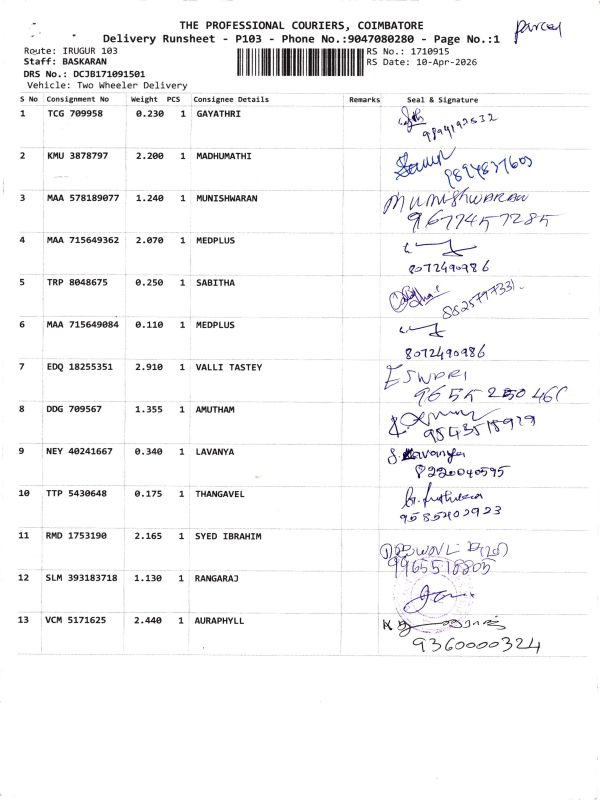 THE PROFESSIONAL COURIERS, COIMBATORE
Parcel
Delivery Runsheet - P103 - Phone No.:9047080280 - Page No.:1
Route: IRUGUR 103
RS No.: 1710915
Staff: BASKARAN
RS Date: 10-Apr-2026
DRS No.: DCJB171091501
Vehicle: Two Wheeler Delivery
S No Consignment No Weight PCS Consignee Details Remarks Seal & Signature
1 TCG 709958 0.230 1 GAYATHRI
9894192632
2 KMU 3878797 2.200 1 MADHUMATHI
9894837603
3 MAA 578189077 1.240 1 MUNISHWARAN MUNISHWARAN
9677457285
4 MAA 715649362 2.070 1 MEDPLUS
8072490986
5 TRP 8048675 0.250 1 SABITHA
6 MAA 715649084 0.110 1 MEDPLUS
8072490986
7 EDQ 18255351 2.910 1 VALLI TASTEY ESWARI
8 DDG 709567 1.355 1 AMUTHAM
9543518929
9 NEY 40241667 0.340 1 LAVANYA S. Lavanya
8220040595
10 TTP 5430648 0.175 1 THANGAVEL
9585402923
11 RMD 1753190 2.165 1 SYED IBRAHIM
9965518805
12 SLM 393183718 1.130 1 RANGARAJ
13 VCM 5171625 2.440 1 AURAPHYLL
9360000324